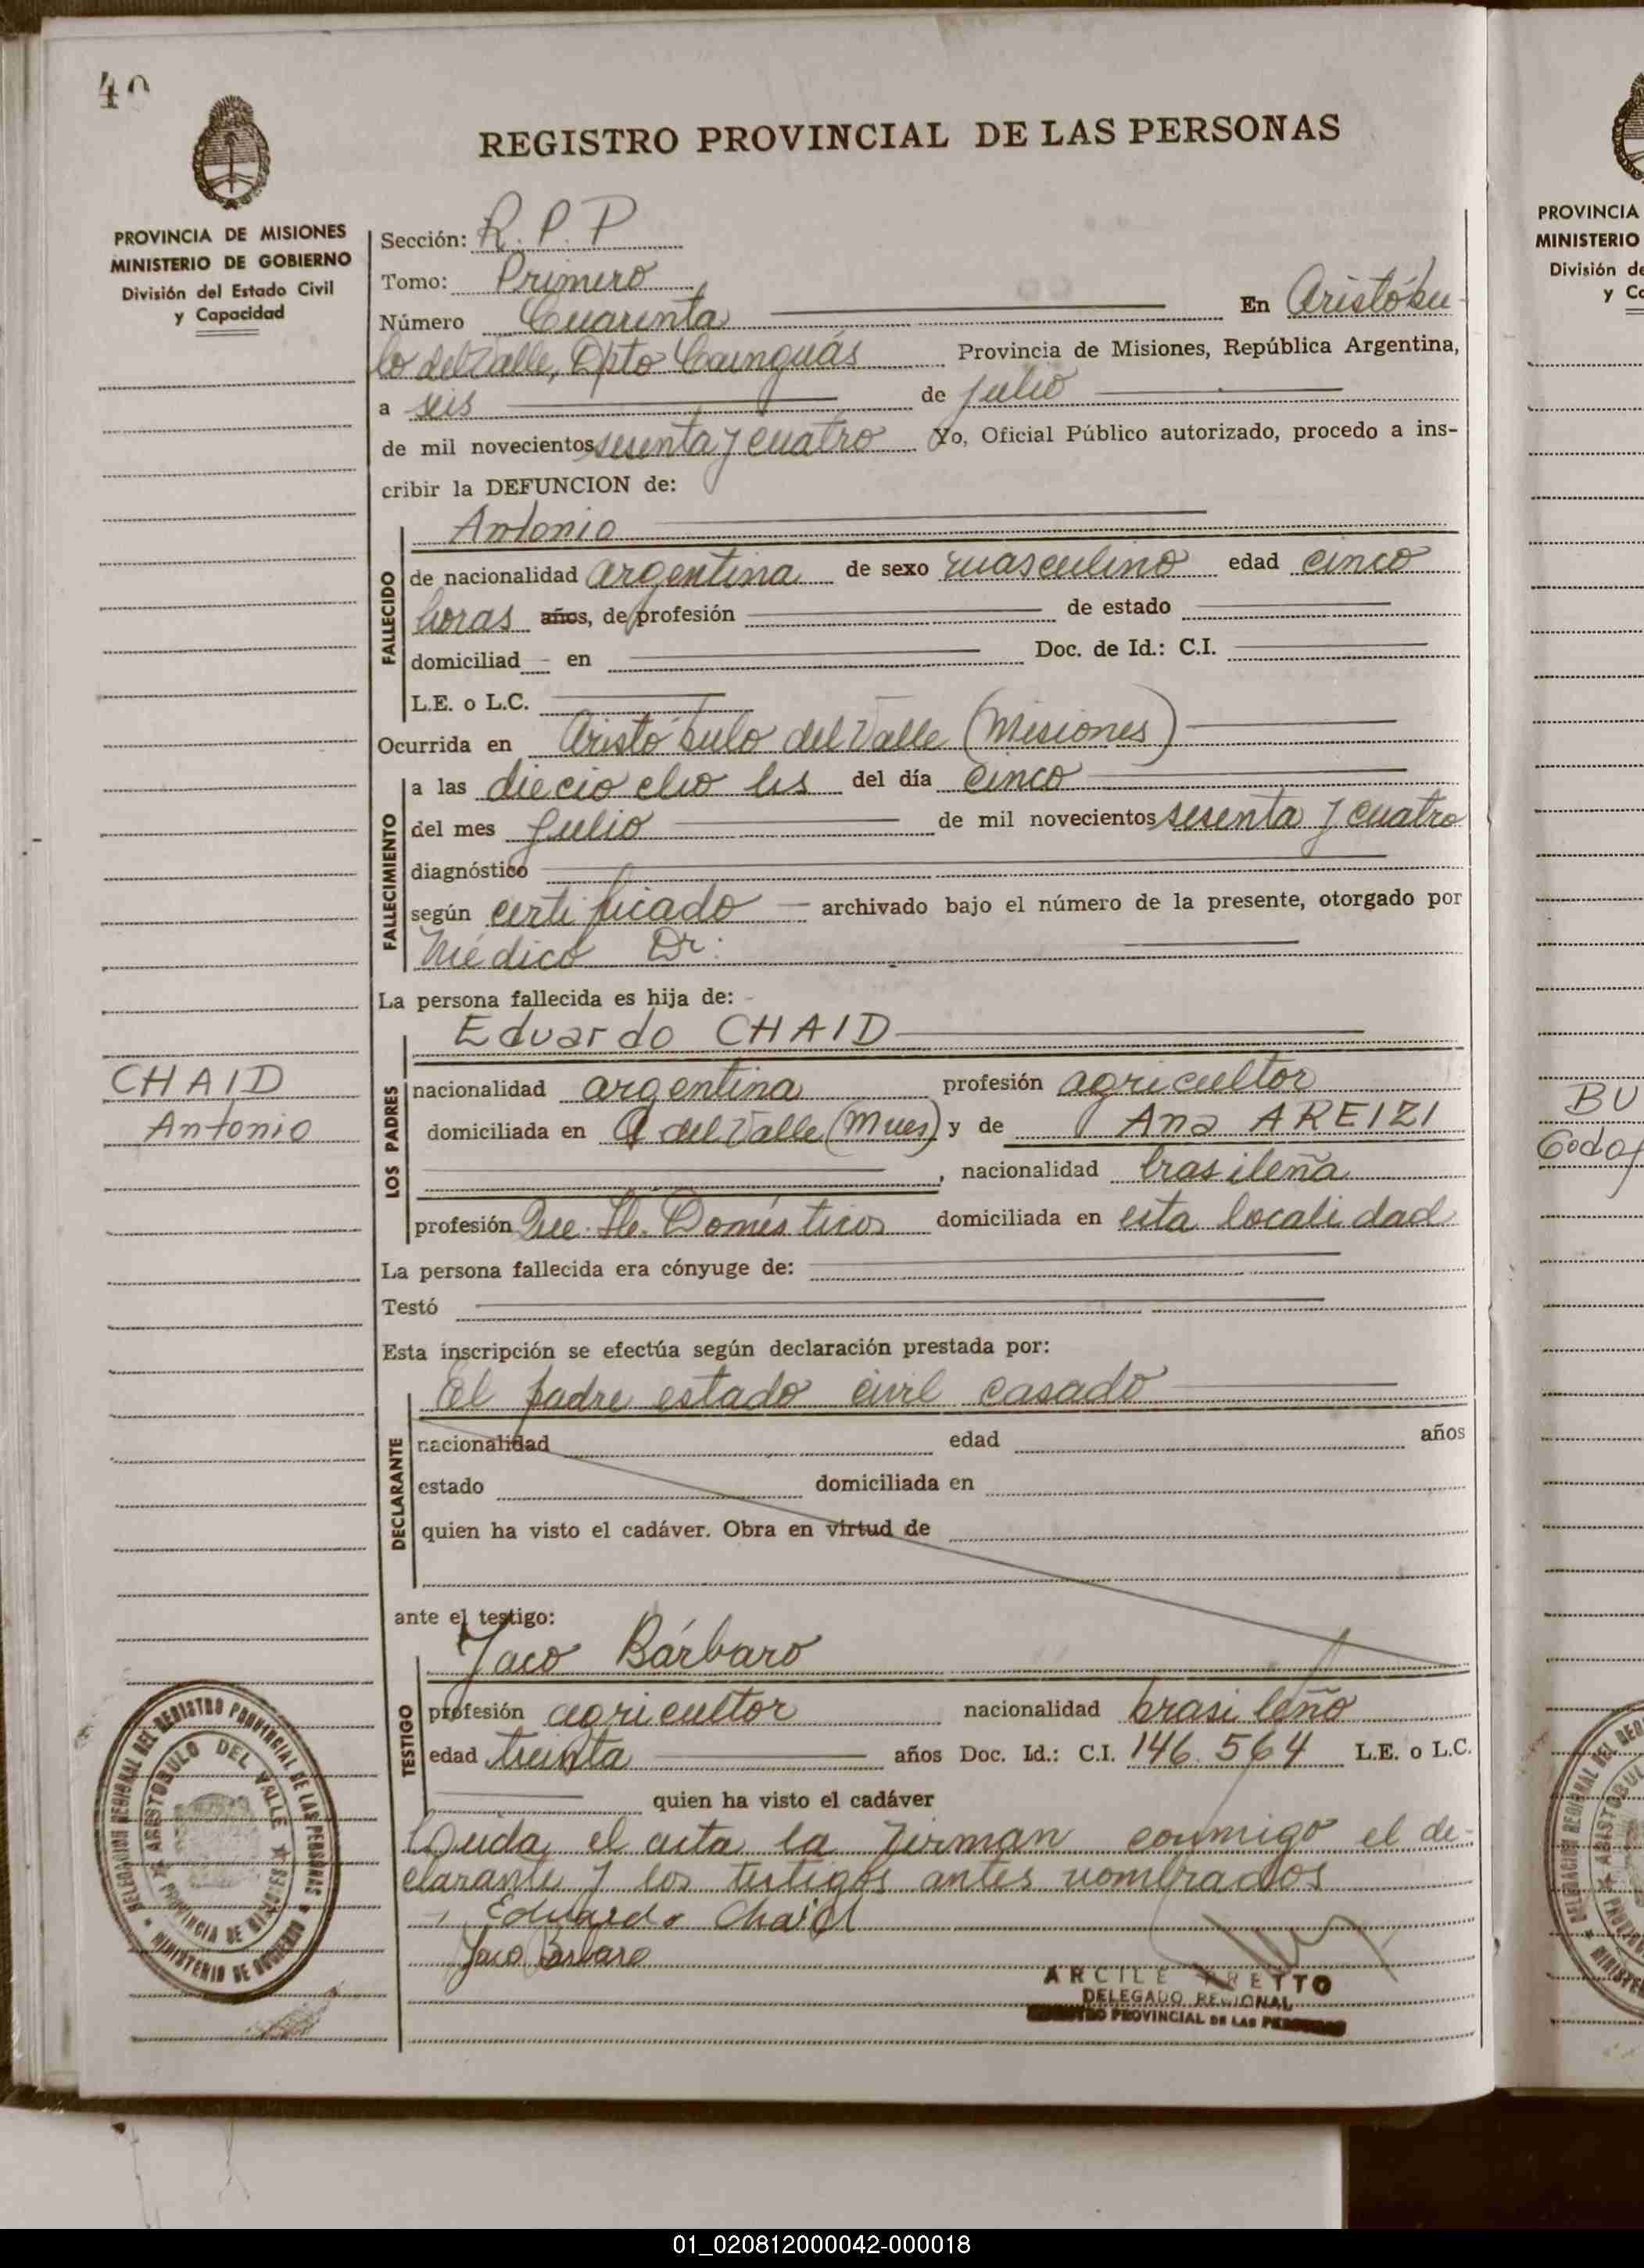 40
REGISTRO PROVINCIAL DE LAS PERSONAS
PROVINCIA DE MISIONES
MINISTERIO DE GOBIERNO
División del Estado Civil
y Capacidad
Sección: R. P. P
Tomo: Primero
Número Cuarenta En Aristóbu-
lo del Valle, Dpto Cainguás Provincia de Misiones, República Argentina,
a seis de julio
de mil novecientos sesenta y cuatro Yo, Oficial Público autorizado, procedo a ins-
cribir la DEFUNCION de:
Antonio
FALLECIDO
de nacionalidad argentina de sexo masculino edad cinco
horas años, de profesión de estado
domiciliad en Doc. de Id.: C.I.
L.E. o L.C.
Ocurrida en Aristóbulo del Valle (Misiones)
FALLECIMIENTO
a las dieciocho hs del día cinco
del mes Julio de mil novecientos sesenta y cuatro
diagnóstico
según certificado archivado bajo el número de la presente, otorgado por
Médico Dr:
La persona fallecida es hija de:
Eduardo CHAID
CHAID
Antonio
LOS PADRES
nacionalidad argentina profesión agricultor
domiciliada en A del Valle (Mnes) y de Ana AREIZI
, nacionalidad brasileña
profesión Que. H. Domésticos domiciliada en esta localidad
La persona fallecida era cónyuge de:
Testó
Esta inscripción se efectúa según declaración prestada por:
El padre estado civil casado
DECLARANTE
nacionalidad edad años
estado domiciliada en
quien ha visto el cadáver. Obra en virtud de
ante el testigo:
Jaco Bárbaro
TESTIGO
profesión agricultor nacionalidad brasileño
edad treinta años Doc. Id.: C.I. 146.564 L.E. o L.C.
quien ha visto el cadáver
Leida el acta la firman conmigo el de-
clarante y los testigos antes nombrados
Eduardo Chaid
Jaco Barbaro
ARCILE PRETTO
DELEGADO REGIONAL
REGISTRO PROVINCIAL DE LAS PERSONAS
DELEGACION REGIONAL DEL REGISTRO PROVINCIAL DE LAS PERSONAS
ARISTOBULO DEL VALLE
PROVINCIA DE MISIONES
MINISTERIO DE GOBIERNO
PROVINCIA
MINISTERIO
División de
y Ca
BU
Godof
01_020812000042-000018